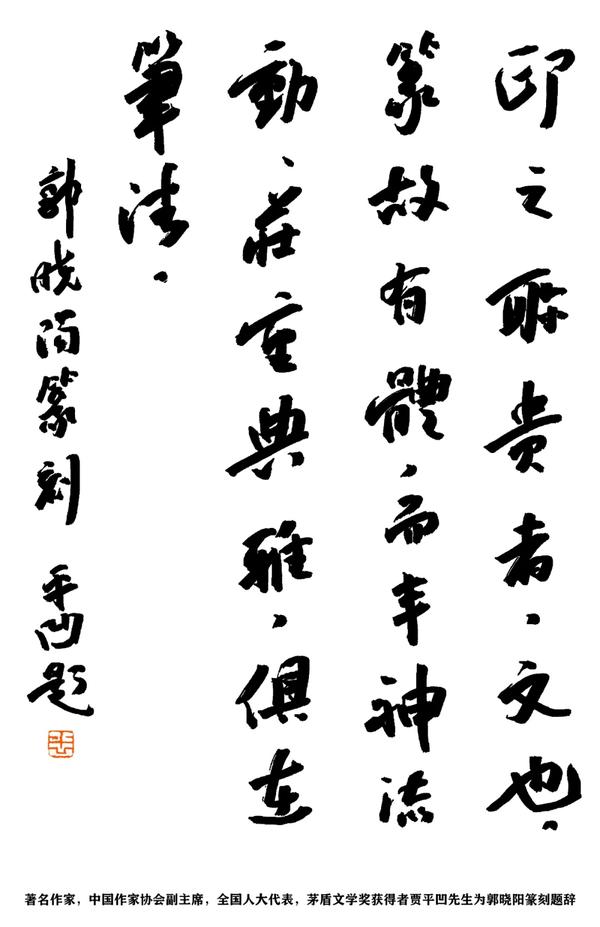 印之所贵者，文也。
篆故有體，而丰神流
動、莊重典雅，俱在
筆法。
郭晓阳篆刻 平凹题
著名作家，中国作家协会副主席，全国人大代表，茅盾文学奖获得者贾平凹先生为郭晓阳篆刻题辞